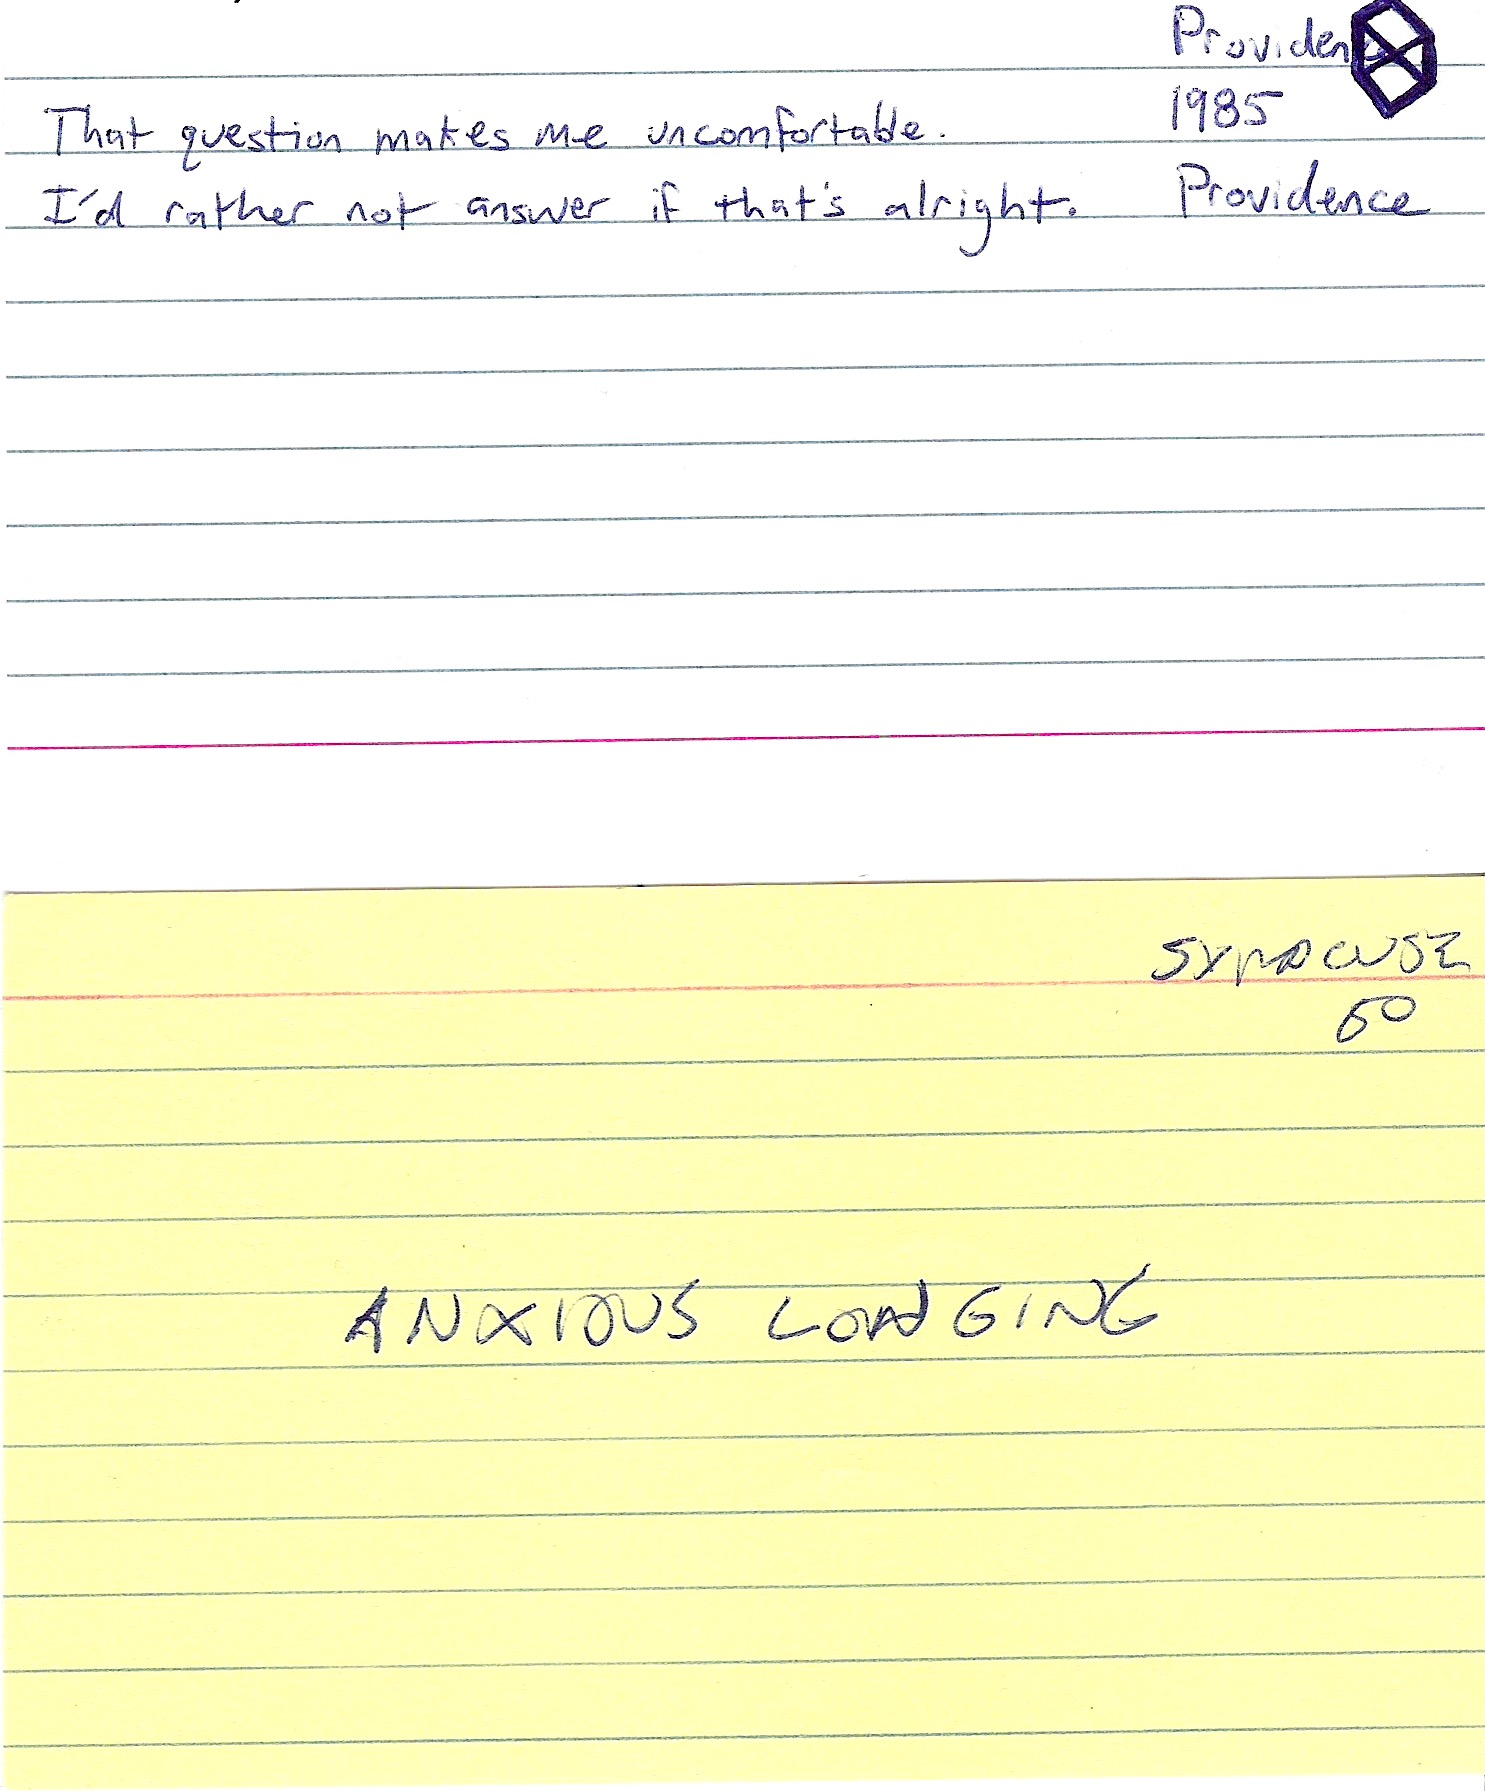 Providen
1985
That question makes me uncomfortable.
I'd rather not answer if that's alright. Providence
SYRACUSE
50
ANXIOUS LONGING